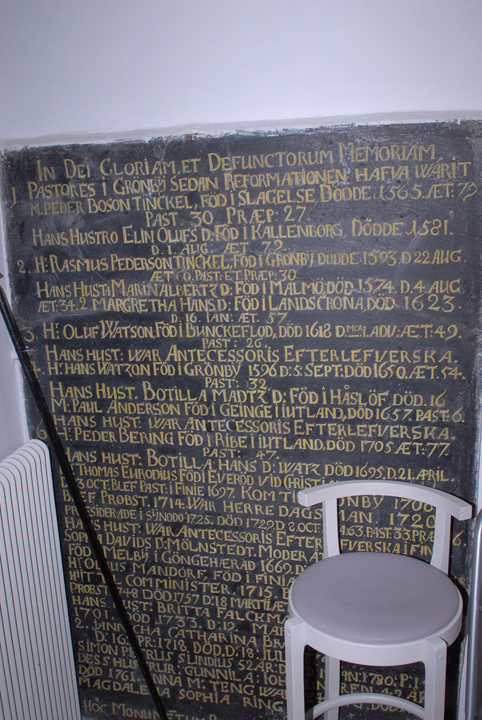 IN DEI GLORIAM, ET DEFUNCTORUM MEMORIAM
PASTORES I GRÖNBY SEDAN REFORMATIONEN HAFVA WARIT
1 M. PEDER BOSON TINCKEL, FÖD I SLAGELSE, DÖDDE 1565. ÆT: 79
PAST. 30. PRÆP: 27.
HANS HUSTRO ELIN OLUFS D: FÖD I KALLENBORG, DÖDDE 1581.
D. 1. AUG: ÆT 72.
2. Hr RASMUS PEDERSON TINCKEL, FÖD I GRÖNBY, DÖDDE 1593 D 22 AUG.
ÆT 60. PAST: ET PRÆP: 30
HANS HUST: MARIN ALBERTZ D: FÖD I MALMÖ, DÖD 1574. D. 4 AUG
ÆT: 34. 2 MARGRETHA HANS D: FÖD I LANDSCRONA, DÖD 1623.
D. 16. IAN: ÆT. 57.
3. Hr: OLUF WATSON FÖD I BUNCKEFLOD, DÖD 1618 DMCA 1. ADV: ÆT: 49.
PAST: 26.
HANS HUST: WAR ANTECESSORIS EFTERLEFVERSKA.
4. Hr: HANS WATZON FÖD I GRÖNBY 1596 D: 5: SEPT: DÖD 1650, ÆT. 54.
PAST: 32.
HANS HUST. BOTILLA MADTZ D: FÖD I HÅSLÖF DÖD. 16
M: PAUL ANDERSON FÖD I GEINGE I IUTLAND, DÖD 1657. PAST: 6.
HANS HUST: WAR ANTECESSORIS EFTERLEFVERSKA.
6 Hr: PEDER BERING FÖD I RIBE I IUTLAND, DÖD 1705 ÆT: 77.
PAST: 47.
HANS HUST: BOTILLA HANS D: WATZ DÖD 1695, D. 21. APRIL.
THOMAS EURODIUS FÖD I EVERÖD VID CHRISTIAN
D. 3 OCT: BLEF PAST: I FINIE 1697. KOM TIL GRÖNBY 1706
BLEF PROBST. 1714. WAR HERRE DAGS MAN. 1720
PRESIDERADE I SYNODO 1725. DÖD 1729 D 8 OCT. Æ: 63. PAST: 33 PRÆP
HANS HUST: WAR ANTECESSORIS EFTERLEFVERSKA I FIN
SOPHIA DAVIDS D: MÖLNSTEDT. MODER
FÖD I MELBY I GÖNGEHÆRAD 1669. D
Hr: OLUF MANDORF, FÖD I FINIA
HIT TIL COMMINISTER 1715. B
PROBST 1748 DÖD 1757 D: 18 MARTII ÆT
HANS HUST: BRITTA FALCKMA
1701. DÖD 1733. D: 12. MA
2. ANN CATHARINA BR
D: 16. PR: 1718. DÖD, D: 18. IUL
SIMON PETRUS SUNDIUS 52 ÅR: D
DESS HUSTRUR: GUNNILLA:
DÖD 1761. ANNA M: TENG WA
MAGDALENA SOPHIA RING
HOC MONUMENTUM